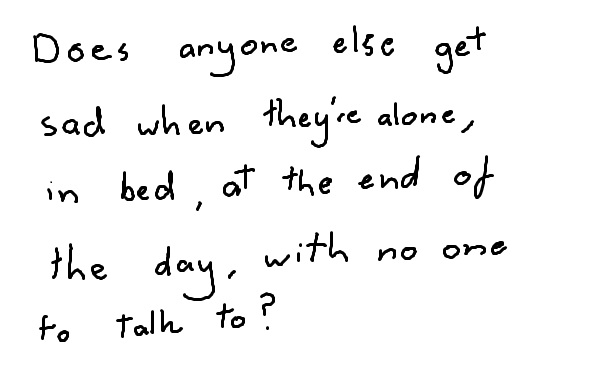 Does anyone else get
sad when they're alone,
in bed, at the end of
the day, with no one
to talk to?